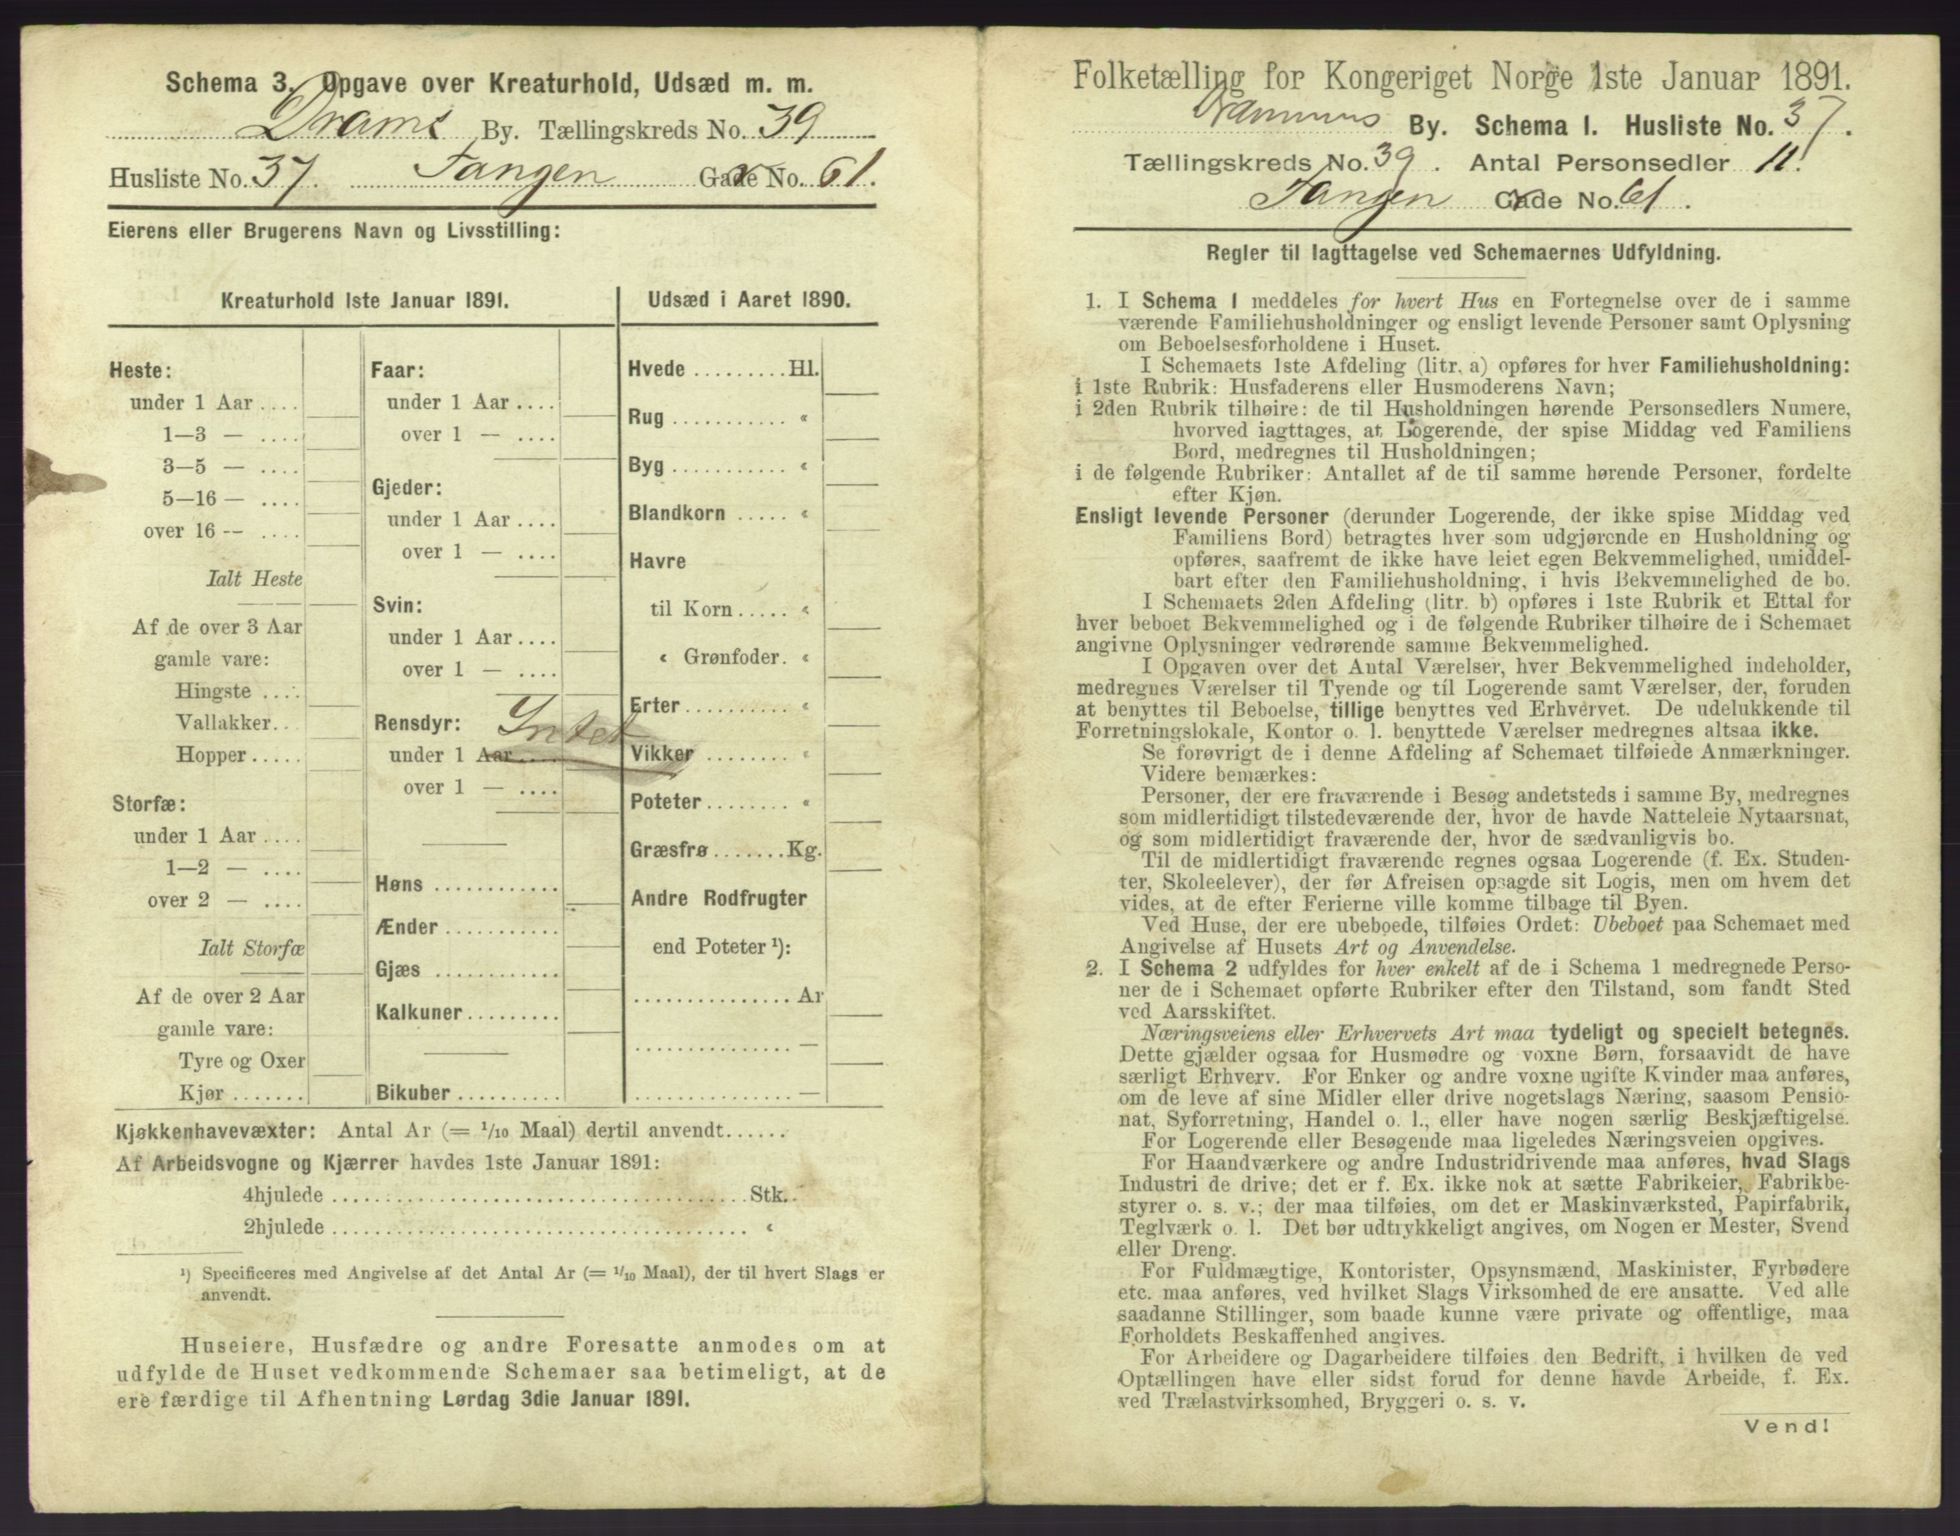 Schema 3. Opgave over Kreaturhold, Udsæd m. m.
Drams By. Tællingskreds No. 39
Husliste No. 37. Tangen Gade No. 61.
Eierens eller Brugerens Navn og Livsstilling:
Kreaturhold 1ste Januar 1891.
Heste:
under 1 Aar ....
1—3 — ....
3—5 — ....
5—16 — ....
over 16 -- ....
Ialt Heste
Af de over 3 Aar
gamle vare:
Hingste ....
Vallakker..
Hopper.....
Storfæ:
under 1 Aar ....
1—2 — ....
over 2 — ....
Ialt Storfæ
Af de over 2 Aar
gamle vare:
Tyre og Oxer
Kjør .......
Faar:
under 1 Aar ....
over 1 — ....
Gjeder:
under 1 Aar ....
over 1 — ....
Svin:
under 1 Aar ....
over 1 — ....
Rensdyr: Intet
under 1 Aar ....
over 1 — ....
Høns ............
Ænder ...........
Gjæs ............
Kalkuner.........
Bikuber ..........
Udsæd i Aaret 1890.
Hvede .........Hl.
Rug ........... «
Byg ........... «
Blandkorn ..... «
Havre
til Korn ..... «
« Grønfoder. «
Erter.......... «
Vikker ........ «
Poteter........ «
Græsfrø .......Kg.
Andre Rodfrugter
end Poteter ¹):
............... Ar
............... —
............... —
Kjøkkenhavevæxter: Antal Ar (= 1/10 Maal) dertil anvendt......
Af Arbeidsvogne og Kjærrer havdes 1ste Januar 1891:
4hjulede ........................................ Stk.
2hjulede ........................................ «
¹) Specificeres med Angivelse af det Antal Ar (= 1/10 Maal), der til hvert Slags er
anvendt.
Huseiere, Husfædre og andre Foresatte anmodes om at
udfylde de Huset vedkommende Schemaer saa betimeligt, at de
ere færdige til Afhentning Lørdag 3die Januar 1891.
Folketælling for Kongeriget Norge 1ste Januar 1891.
Drammens By. Schema 1. Husliste No. 37.
Tællingskreds No. 39. Antal Personsedler 11.
Tangen Gade No. 61.
Regler til Iagttagelse ved Schemaernes Udfyldning.
1. I Schema 1 meddeles for hvert Hus en Fortegnelse over de i samme
værende Familiehusholdninger og ensligt levende Personer samt Oplysning
om Beboelsesforholdene i Huset.
I Schemaets 1ste Afdeling (litr. a) opføres for hver Familiehusholdning:
i 1ste Rubrik: Husfaderens eller Husmoderens Navn;
i 2den Rubrik tilhøire: de til Husholdningen hørende Personsedlers Numere,
hvorved iagttages, at Logerende, der spise Middag ved Familiens
Bord, medregnes til Husholdningen;
i de følgende Rubriker: Antallet af de til samme hørende Personer, fordelte
efter Kjøn.
Ensligt levende Personer (derunder Logerende, der ikke spise Middag ved
Familiens Bord) betragtes hver som udgjørende en Husholdning og
opføres, saafremt de ikke have leiet egen Bekvemmelighed, umiddel-
bart efter den Familiehusholdning, i hvis Bekvemmelighed de bo.
I Schemaets 2den Afdeling (litr. b) opføres i 1ste Rubrik et Ettal for
hver beboet Bekvemmelighed og i de følgende Rubriker tilhøire de i Schemaet
angivne Oplysninger vedrørende samme Bekvemmelighed.
I Opgaven over det Antal Værelser, hver Bekvemmelighed indeholder,
medregnes Værelser til Tyende og til Logerende samt Værelser, der, foruden
at benyttes til Beboelse, tillige benyttes ved Erhvervet. De udelukkende til
Forretningslokale, Kontor o. l. benyttede Værelser medregnes altsaa ikke.
Se forøvrigt de i denne Afdeling af Schemaet tilføiede Anmærkninger.
Videre bemærkes:
Personer, der ere fraværende i Besøg andetsteds i samme By, medregnes
som midlertidigt tilstedeværende der, hvor de havde Natteleie Nytaarsnat,
og som midlertidigt fraværende der, hvor de sædvanligvis bo.
Til de midlertidigt fraværende regnes ogsaa Logerende (f. Ex. Studen-
ter, Skoleelever), der før Afreisen opsagde sit Logis, men om hvem det
vides, at de efter Ferierne ville komme tilbage til Byen.
Ved Huse, der ere ubeboede, tilføies Ordet: Ubeboet paa Schemaet med
Angivelse af Husets Art og Anvendelse.
2. I Schema 2 udfyldes for hver enkelt af de i Schema 1 medregnede Perso-
ner de i Schemaet opførte Rubriker efter den Tilstand, som fandt Sted
ved Aarsskiftet.
Næringsveiens eller Erhvervets Art maa tydeligt og specielt betegnes.
Dette gjælder ogsaa for Husmødre og voxne Børn, forsaavidt de have
særligt Erhverv. For Enker og andre voxne ugifte Kvinder maa anføres,
om de leve af sine Midler eller drive nogetslags Næring, saasom Pensio-
nat, Syforretning, Handel o. l., eller have nogen særlig Beskjæftigelse.
For Logerende eller Besøgende maa ligeledes Næringsveien opgives.
For Haandværkere og andre Industridrivende maa anføres, hvad Slags
Industri de drive; det er f. Ex. ikke nok at sætte Fabrikeier, Fabrikbe-
styrer o. s. v.; der maa tilføies, om det er Maskinværksted, Papirfabrik,
Teglværk o. l. Det bør udtrykkeligt angives, om Nogen er Mester, Svend
eller Dreng.
For Fuldmægtige, Kontorister, Opsynsmænd, Maskinister, Fyrbødere
etc. maa anføres, ved hvilket Slags Virksomhed de ere ansatte. Ved alle
saadanne Stillinger, som baade kunne være private og offentlige, maa
Forholdets Beskaffenhed angives.
For Arbeidere og Dagarbeidere tilføies den Bedrift, i hvilken de ved
Optællingen have eller sidst forud for denne havde Arbeide, f. Ex.
ved Trælastvirksomhed, Bryggeri o. s. v.
Vend!